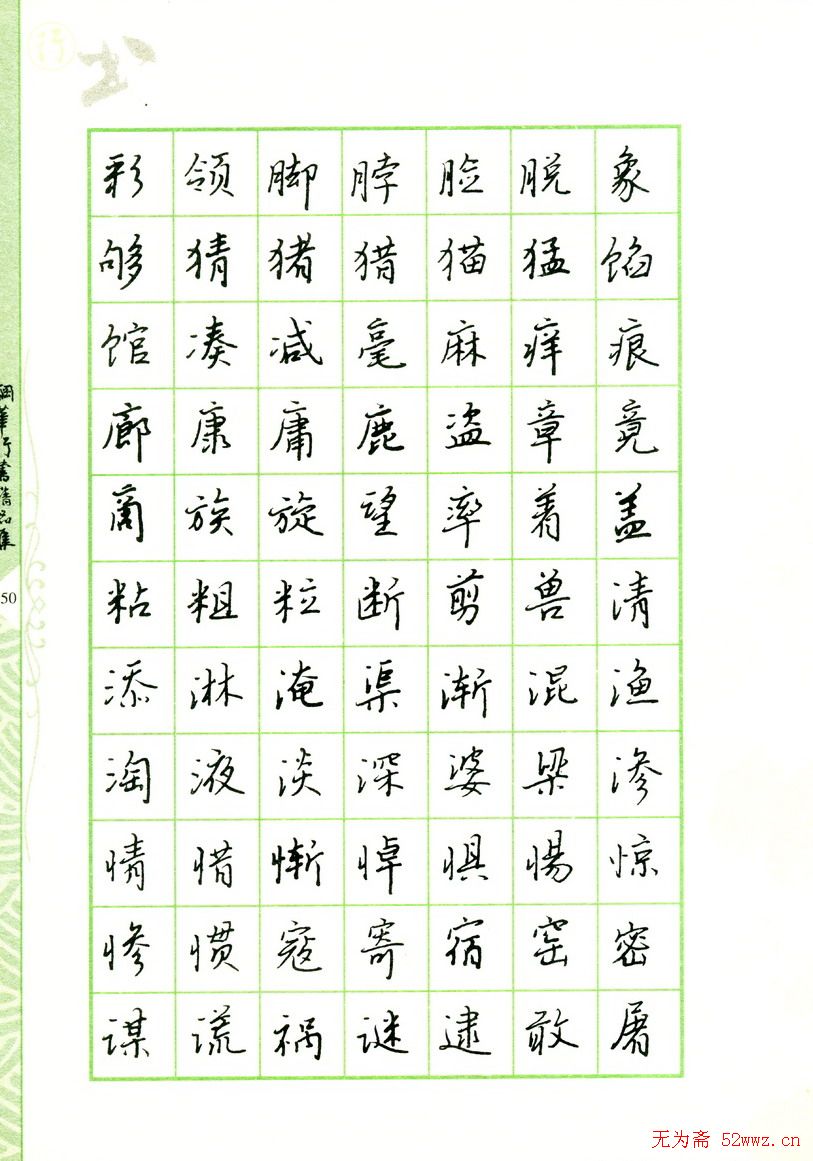 行书
彩领脚脖脸脱象
够猜猪猎猫猛馅
馆凑减毫麻痒痕
廊康庸鹿盗章竟
商族旋望率着盖
粘粗粒断剪兽清
添淋淹渠渐混渔
淘液淡深婆梁渗
情惜惭悼惧惕惊
惨惯寇寄宿窑密
谋谎祸谜逮敢屠
華行書精品集
50
无为斋 52wwz.cn